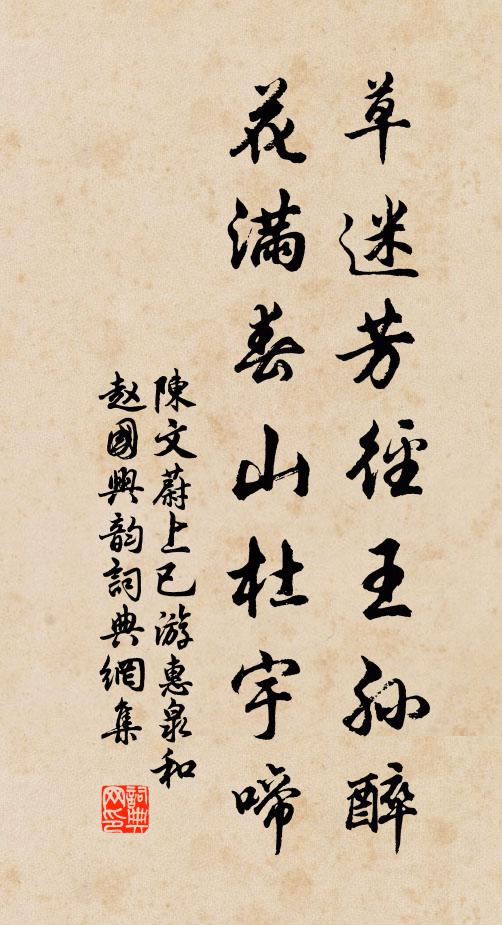 草迷芳徑王孫醉
花滿春山杜宇啼
陳文蔚上巳游惠泉和
趙國興韵詞典網集
詞典网印